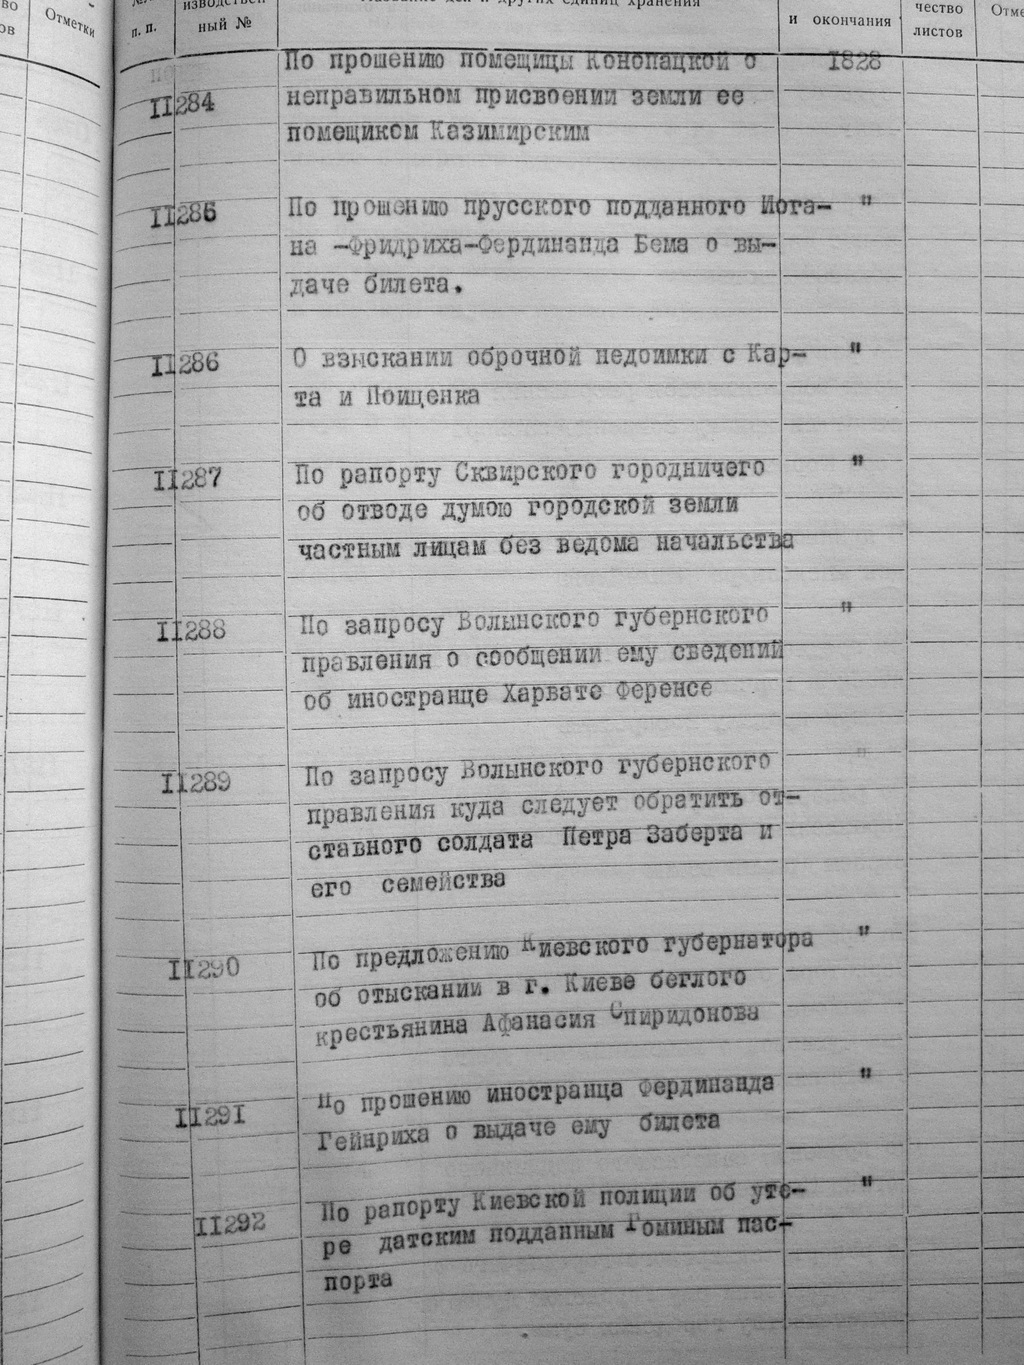 во
ов
Отметки
п. п.
изводствен
ный №
Название дел и других единиц хранения
и окончания
чество
листов
По прошению помещицы Конопацкой о 1828
11284 неправильном присвоении земли ее
помещиком Казимирским
11285 По прошению прусского подданного Иога- "
на -Фридриха-Фердинанда Бема о вы-
даче билета.
11286 О взыскании оброчной недоимки с Кар- "
та и Поиценка
11287 По рапорту Сквирского городничего "
об отводе думою городской земли
частным лицам без ведома начальства
11288 По запросу Волынского губернского "
правления о сообщении ему сведений
об иностранце Харвате Ференсе
11289 По запросу Волынского губернского "
правления куда следует обратить от-
ставного солдата Петра Заберта и
его семейства
11290 По предложению Киевского губернатора "
об отыскании в г. Киеве беглого
крестьянина Афанасия Спиридонова
11291 По прошению иностранца Фердинанда "
Гейнриха о выдаче ему билета
11292 По рапорту Киевской полиции об уте- "
ре датским подданным Гоминым пас-
порта